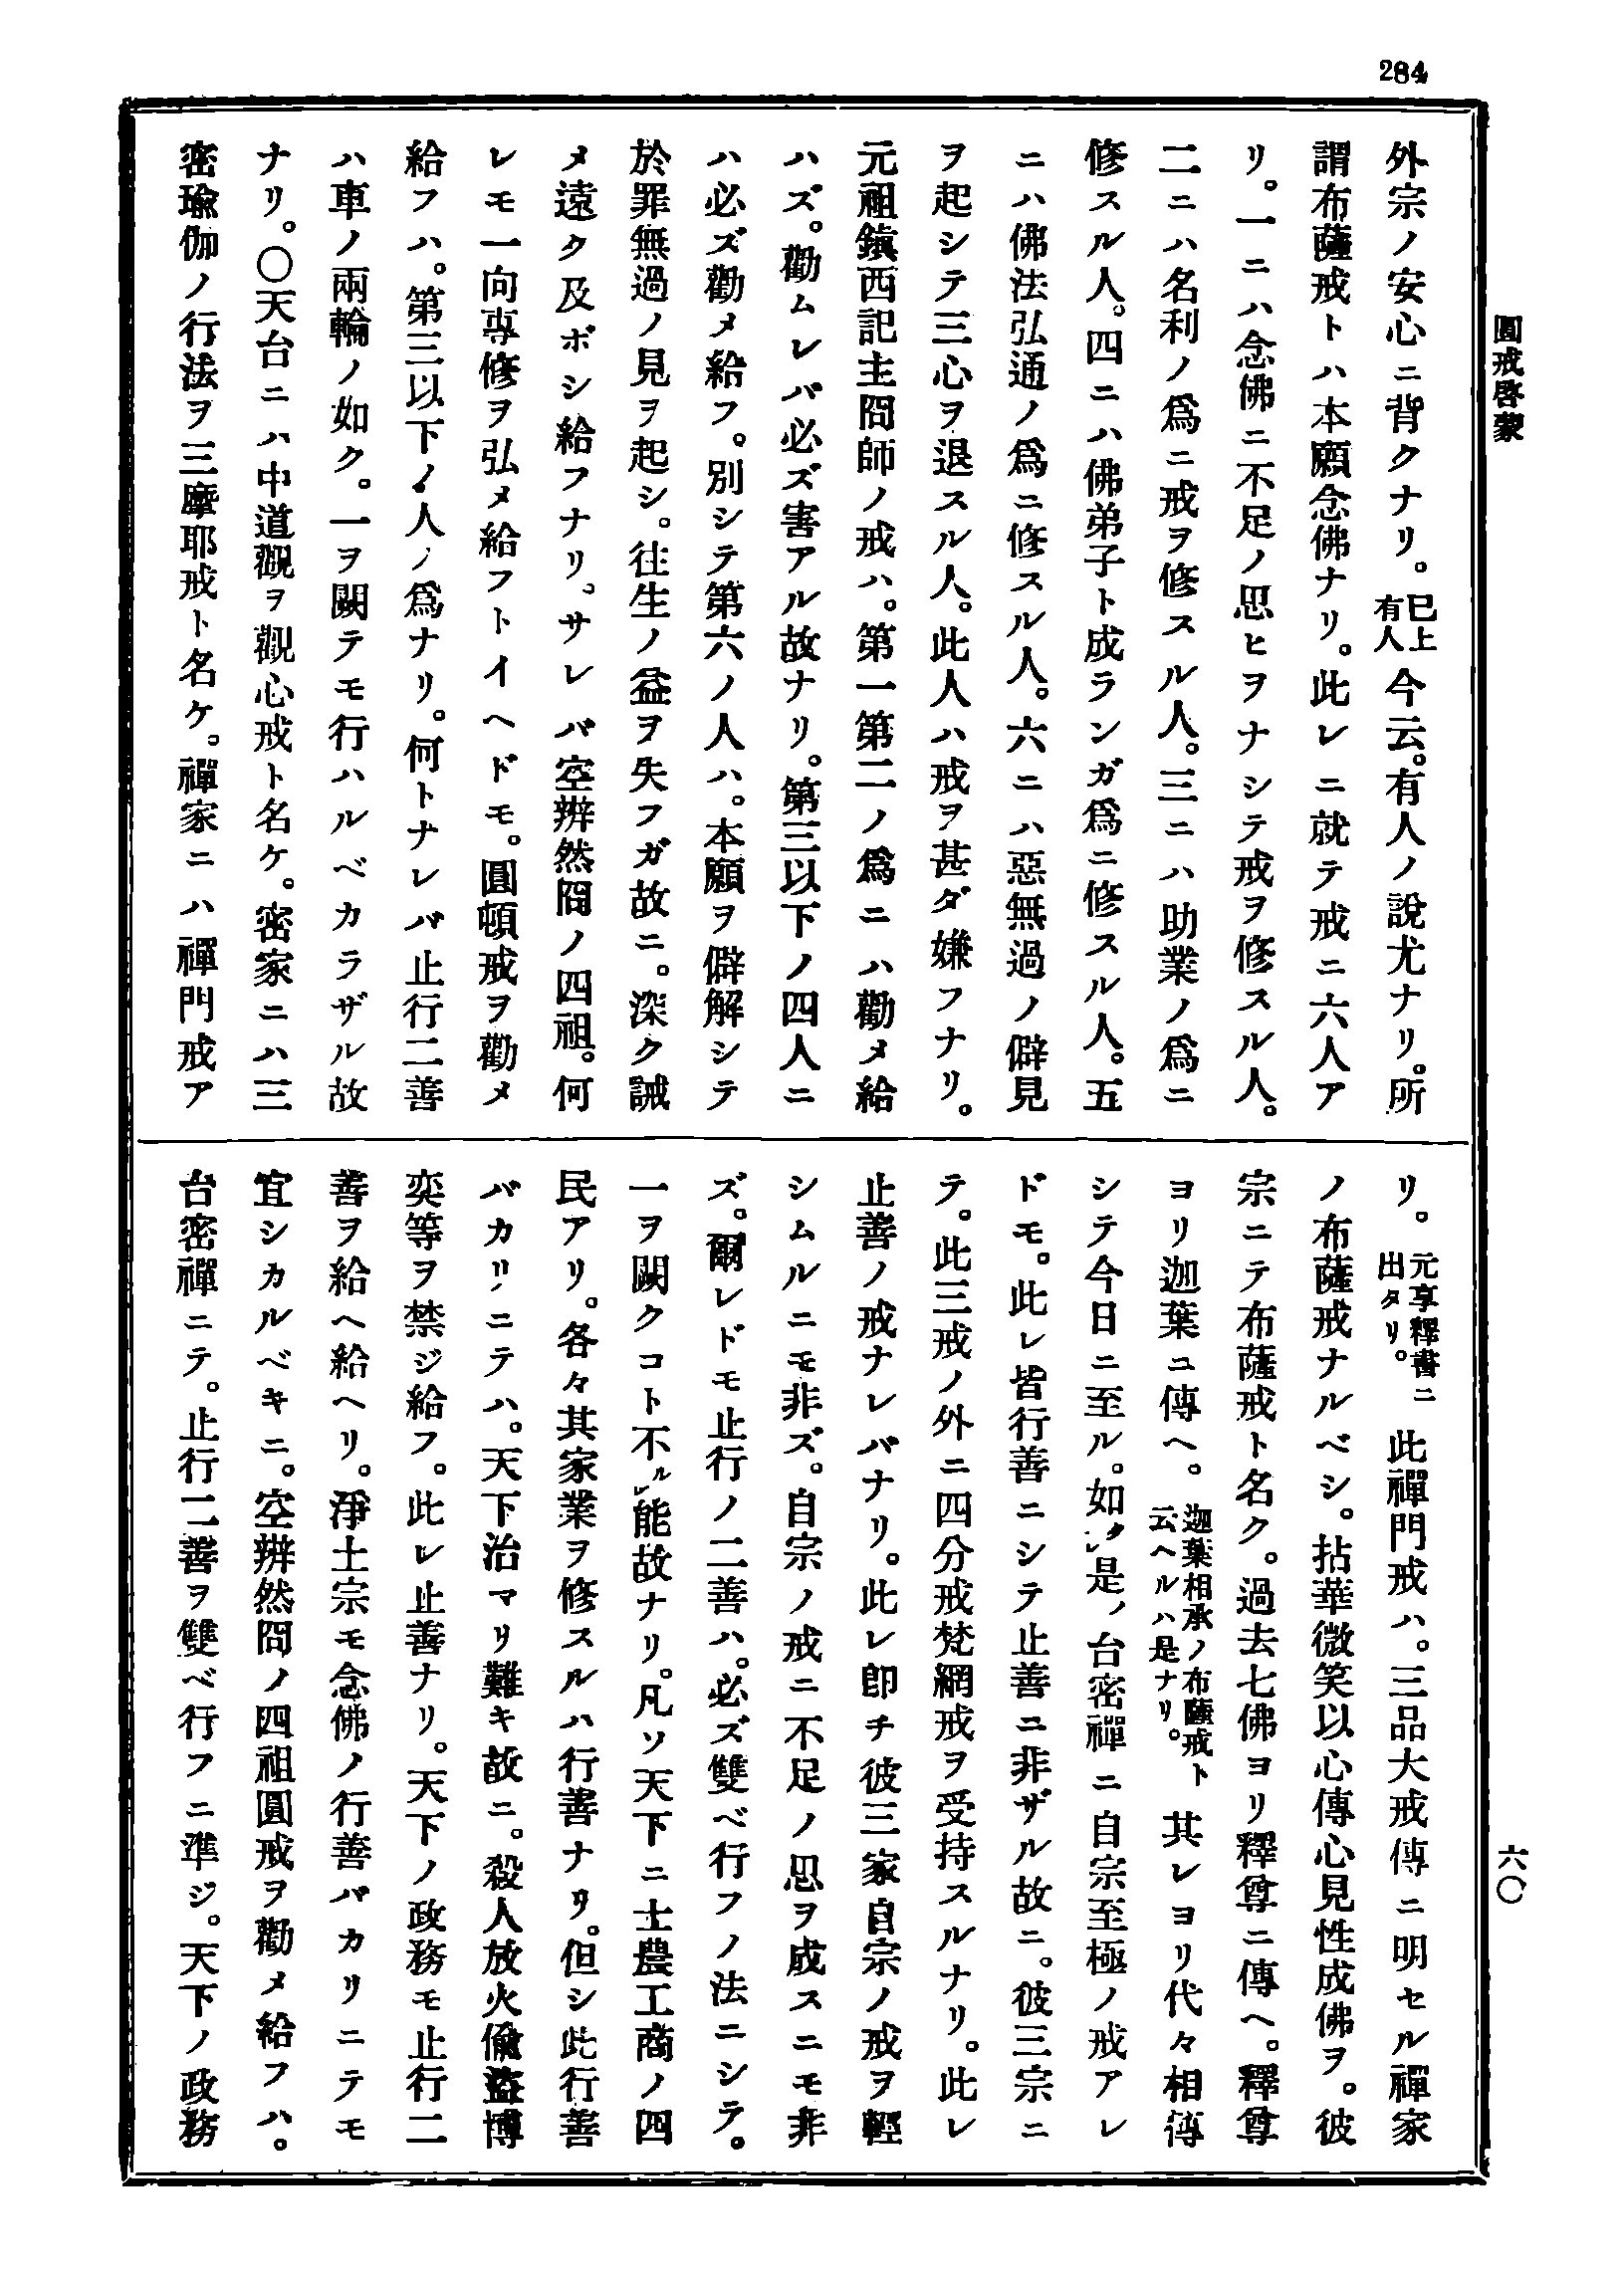 284
圓戒啓蒙
六〇
外宗ノ安心ニ背クナリ。已上有人今云。有人ノ說尤ナリ。所
謂布薩戒トハ本願念佛ナリ。此レニ就テ戒ニ六人ア
リ。一ニハ念佛ニ不足ノ思ヒヲナシテ戒ヲ修スル人。
二ニハ名利ノ爲ニ戒ヲ修スル人。三ニハ助業ノ爲ニ
修スル人。四ニハ佛弟子ト成ランガ爲ニ修スル人。五
ニハ佛法弘通ノ爲ニ修スル人。六ニハ惡無過ノ僻見
ヲ起シテ三心ヲ退スル人。此人ハ戒ヲ甚ダ嫌フナリ。
元祖鎭西記主冏師ノ戒ハ。第一第二ノ爲ニハ勸メ給
ハズ。勸ムレバ必ズ害アル故ナリ。第三以下ノ四人ニ
ハ必ズ勸メ給フ。別シテ第六ノ人ハ。本願ヲ僻解シテ
於罪無過ノ見ヲ起シ。往生ノ益ヲ失フガ故ニ。深ク誡
メ遠ク及ボシ給フナリ。サレバ空辨然冏ノ四祖。何
レモ一向專修ヲ弘メ給フトイヘドモ。圓頓戒ヲ勸メ
給フハ。第三以下ノ人ノ爲ナリ。何トナレバ止行二善
ハ車ノ兩輪ノ如ク。一ヲ闕テモ行ハルベカラザル故
ナリ。〇天台ニハ中道觀ヲ觀心戒ト名ケ。密家ニハ三
密瑜伽ノ行法ヲ三摩耶戒ト名ケ。禪家ニハ禪門戒ア
リ。元享釋書ニ出タリ。此禪門戒ハ。三品大戒傳ニ明セル禪家
ノ布薩戒ナルベシ。拈華微笑以心傳心見性成佛ヲ。彼
宗ニテ布薩戒ト名ク。過去七佛ヨリ釋尊ニ傳ヘ。釋尊
ヨリ迦葉ニ傳ヘ。迦葉相承ノ布薩戒ト云ヘルハ是ナリ。其レヨリ代々相傳
シテ今日ニ至ル。如クレ是ノ台密禪ニ自宗至極ノ戒アレ
ドモ。此レ皆行善ニシテ止善ニ非ザル故ニ。彼三宗ニ
テ。此三戒ノ外ニ四分戒梵網戒ヲ受持スルナリ。此レ
止善ノ戒ナレバナリ。此レ卽チ彼三家自宗ノ戒ヲ輕
シムルニモ非ズ。自宗ノ戒ニ不足ノ思ヲ成スニモ非
ズ。爾レドモ止行ノ二善ハ。必ズ雙ベ行フノ法ニシテ。
一ヲ闕クコト不ルレ能故ナリ。凡ソ天下ニ士農工商ノ四
民アリ。各々其家業ヲ修スルハ行善ナリ。但シ此行善
バカリニテハ。天下治マリ難キ故ニ。殺人放火偸盜博
奕等ヲ禁ジ給フ。此レ止善ナリ。天下ノ政務モ止行二
善ヲ給ヘ給ヘリ。淨土宗モ念佛ノ行善バカリニテモ
宜シカルベキニ。空辨然冏ノ四祖圓戒ヲ勸メ給フハ。
台密禪ニテ。止行二善ヲ雙ベ行フニ準ジ。天下ノ政務